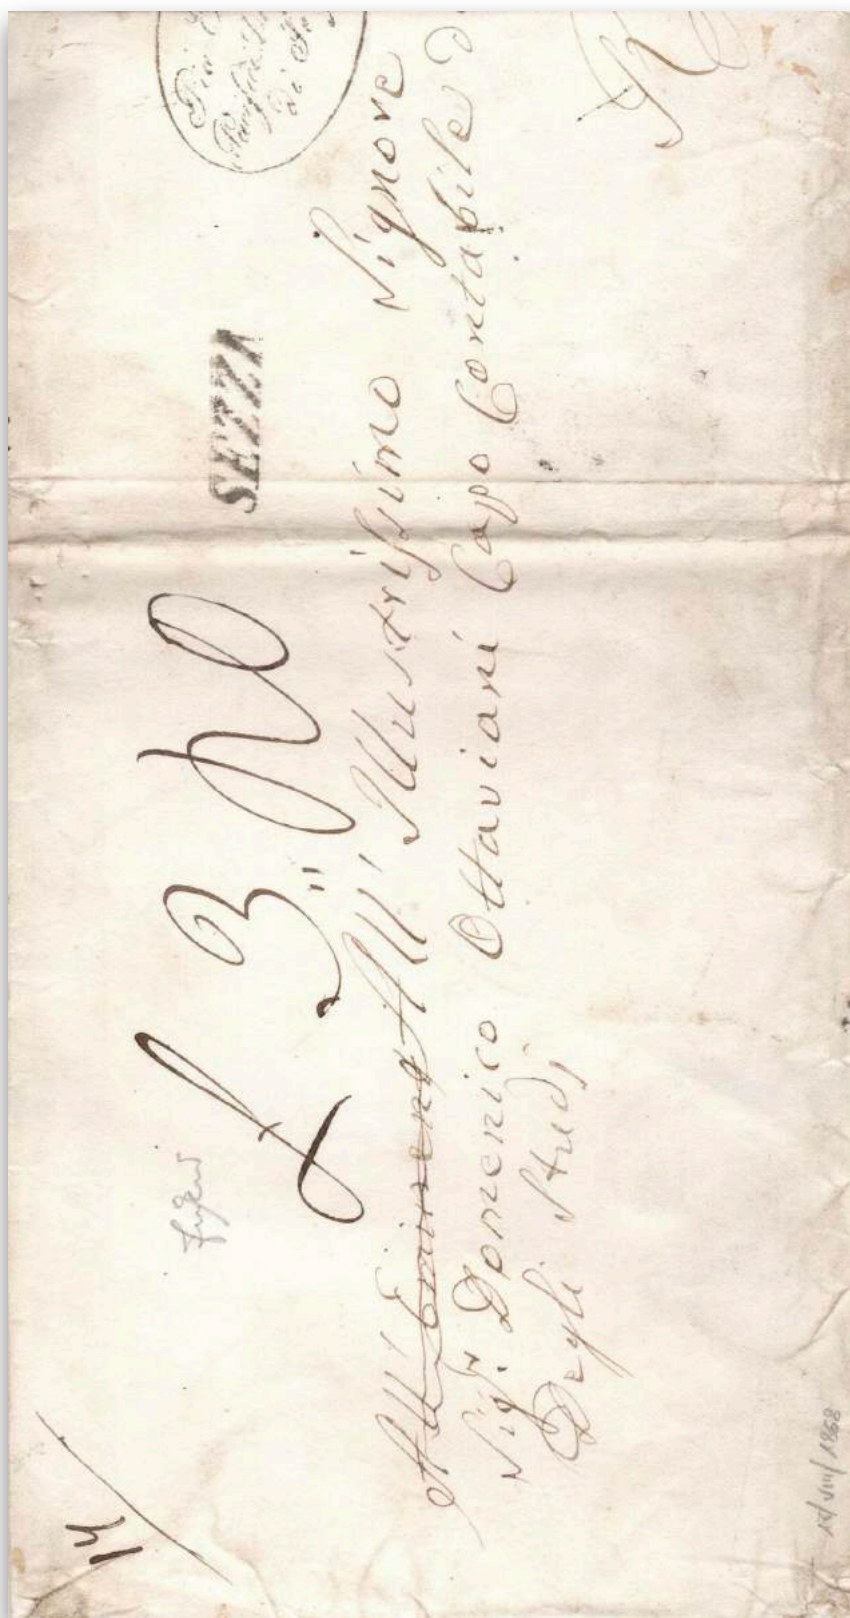 14
£ 3"
SEZZA
Pia
di
All'Eminen All' Illustrissimo Signore
Sigr. Domenico Ottaviani Capo Contabile d
Degli Studj
R
17/VIII/1868